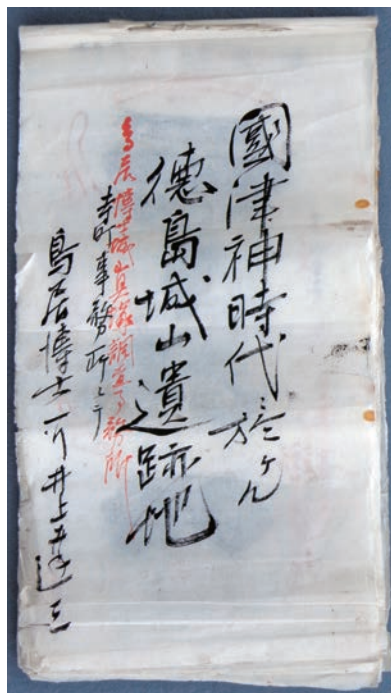 國津神時代於ケル
徳島城山遺跡地
鳥居博士城山貝塚調査事務所
事務所ニテ
鳥居博士一行井上達三